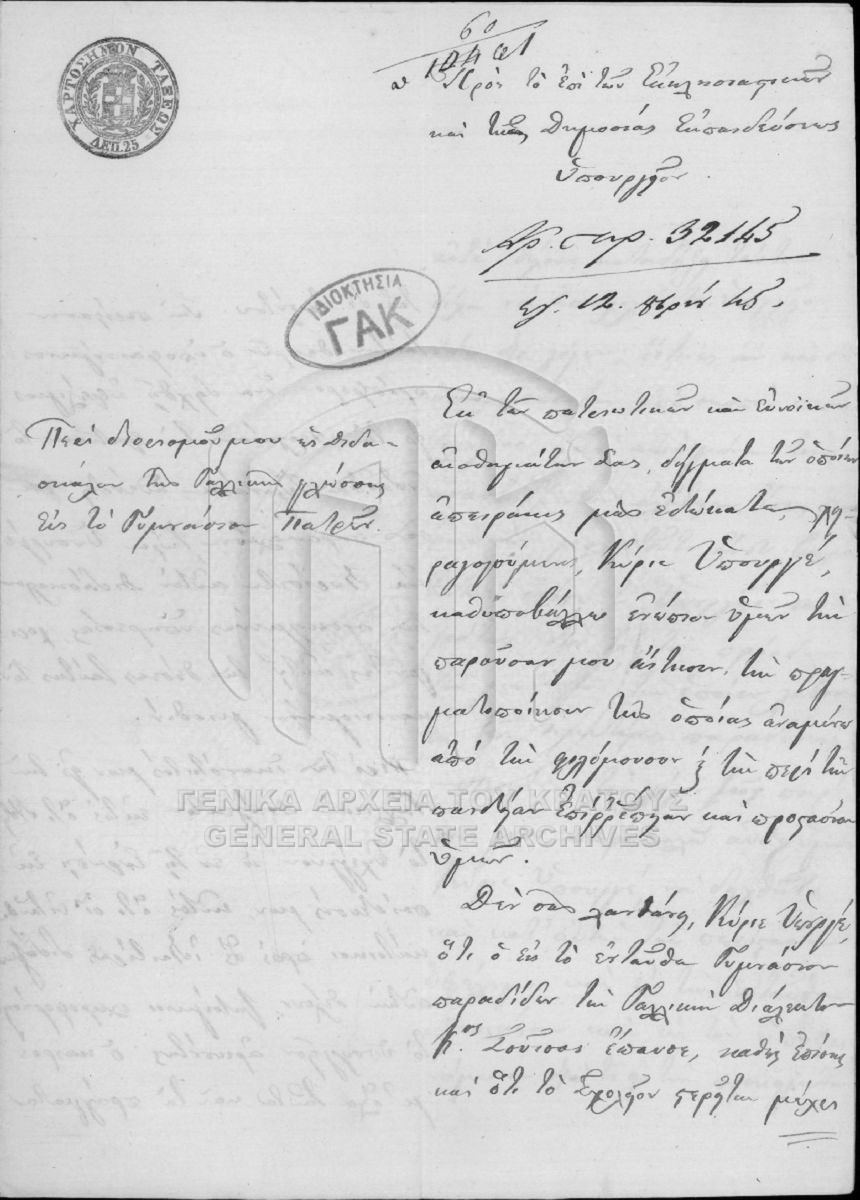 ΧΑΡΤΟΣΗΜΟΝ ΤΑΞΕΩΣ
ΛΕΠ. 25
60
Πρὸς τὸ ἐπὶ τῶν Ἐκκλησιαστικῶν
καὶ τῆς Δημοσίας Ἐκπαιδεύσεως
Ὑπουργεῖον.
Ἀρ. πρ. 32145
12. 45.
ΙΔΙΟΚΤΗΣΙΑ
ΓΑΚ
Περὶ διορισμοῦ μου εἰς διδα-
σκάλου τῆς Γαλλικῆς γλώσσης
εἰς τὸ Γυμνάσιον Πατρῶν.
Ἐκ τῶν πατριωτικῶν καὶ εὐνοϊκῶν
αἰσθημάτων σας, δείγματα τῶν ὁποίων
ἀπειράκις μᾶς ἐδώκατε,
Κύριε Ὑπουργέ,
καθυποβάλλω ἐνώπιον ὑμῶν τὴν
παροῦσαν μου αἴτησιν, τὴν πραγ-
ματοποίησιν τῆς ὁποίας ἀναμένω
ἀπὸ τὴν φιλόμουσον τὴν περὶ τὴν
παιδείαν ἐπιῤῥέπειαν καὶ προστασίαν
ὑμῶν.
Δὲν σας λανθάνει, Κύριε Ὑπουργέ,
ὅτι ὁ εἰς τὸ ἐνταῦθα Γυμνάσιον
παραδίδων τὴν Γαλλικὴν διάλεκτον
Κ.ος Σοῦτσας ἔπαυσε, καθὼς ἐπίσης
καὶ ὅτι τὸ Σχολεῖον στερεῖται μέχρι
ΓΕΝΙΚΑ ΑΡΧΕΙΑ ΤΟΥ ΚΡΑΤΟΥΣ
GENERAL STATE ARCHIVES